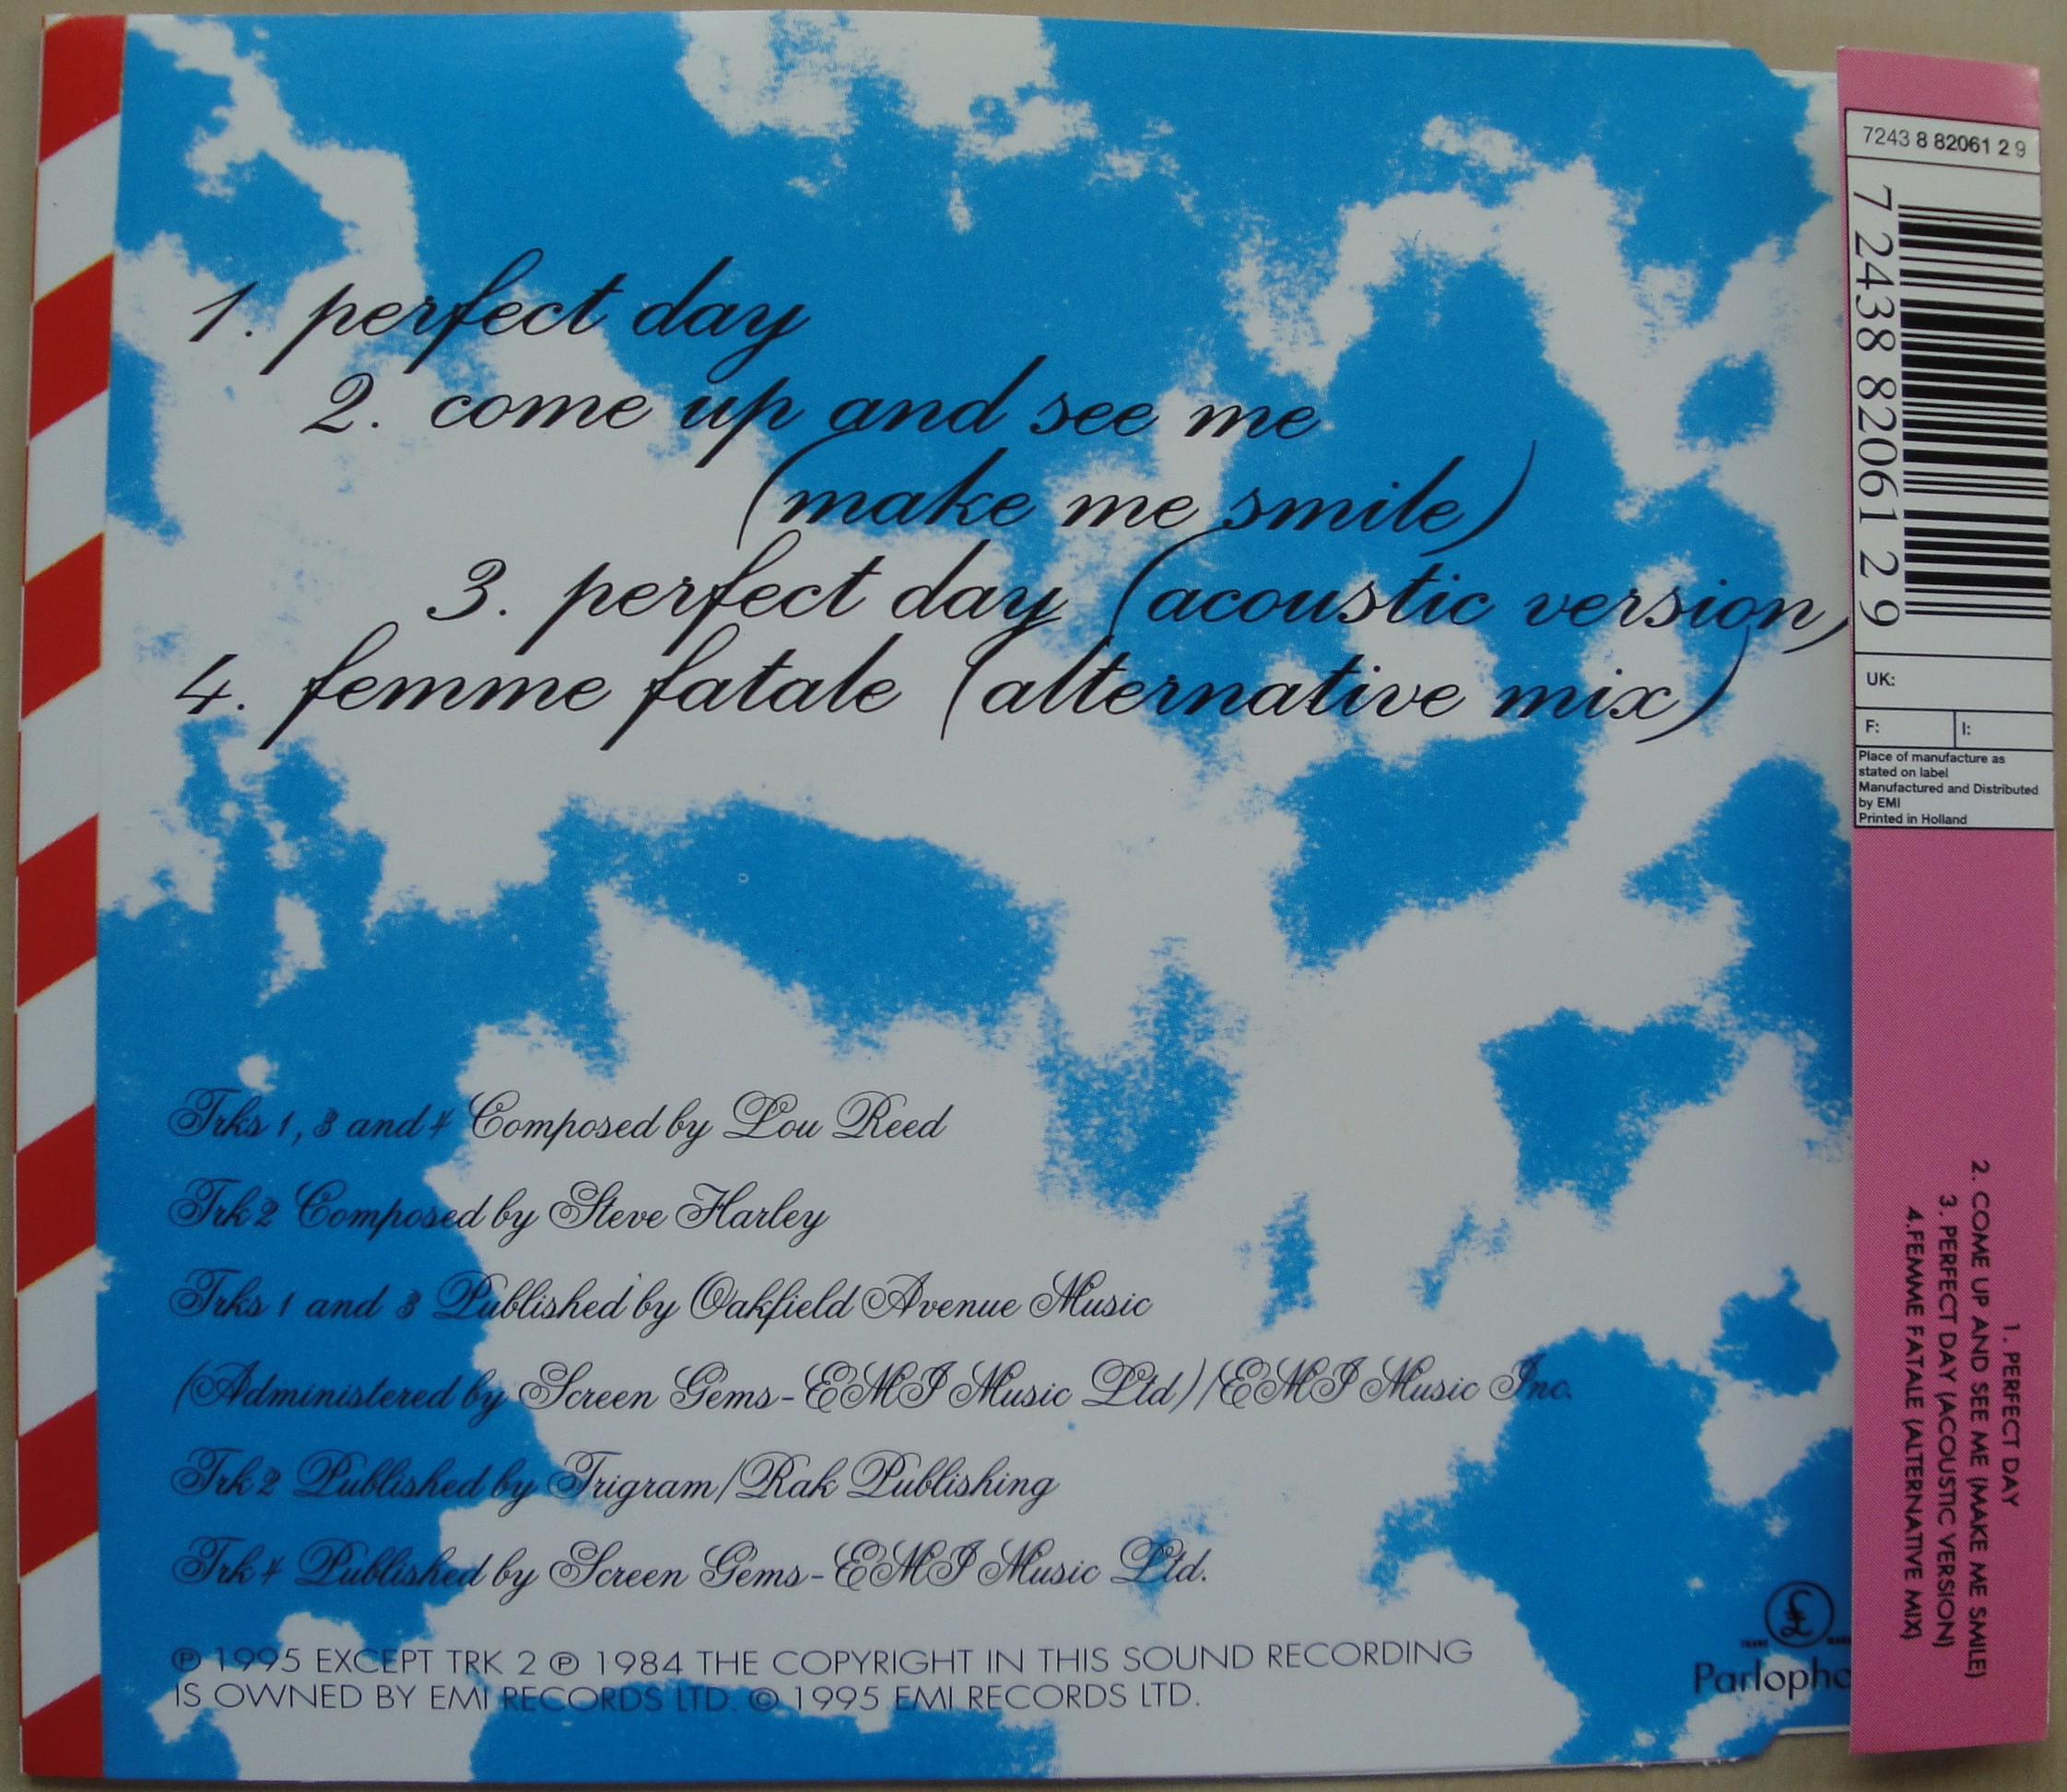 1. perfect day
2. come up and see me
(make me smile)
3. perfect day (acoustic version)
4. femme fatale (alternative mix)
Trks 1, 3 and 4 Composed by Lou Reed
Trk 2 Composed by Steve Harley
Trks 1 and 3 Published by Oakfield Avenue Music
(Administered by Screen Gems-EMI Music Ltd)/EMI Music Inc.
Trk 2 Published by Trigram/Rak Publishing
Trk 4 Published by Screen Gems-EMI Music Ltd.
℗ 1995 EXCEPT TRK 2 ℗ 1984 THE COPYRIGHT IN THIS SOUND RECORDING
IS OWNED BY EMI RECORDS LTD. © 1995 EMI RECORDS LTD.
£
Parlopho
7243 8 82061 2 9
7 2438 82061 2 9
UK:
F: I:
Place of manufacture as
stated on label
Manufactured and Distributed
by EMI
Printed in Holland
1. PERFECT DAY
2. COME UP AND SEE ME (MAKE ME SMILE)
3. PERFECT DAY (ACOUSTIC VERSION)
4.FEMME FATALE (ALTERNATIVE MIX)